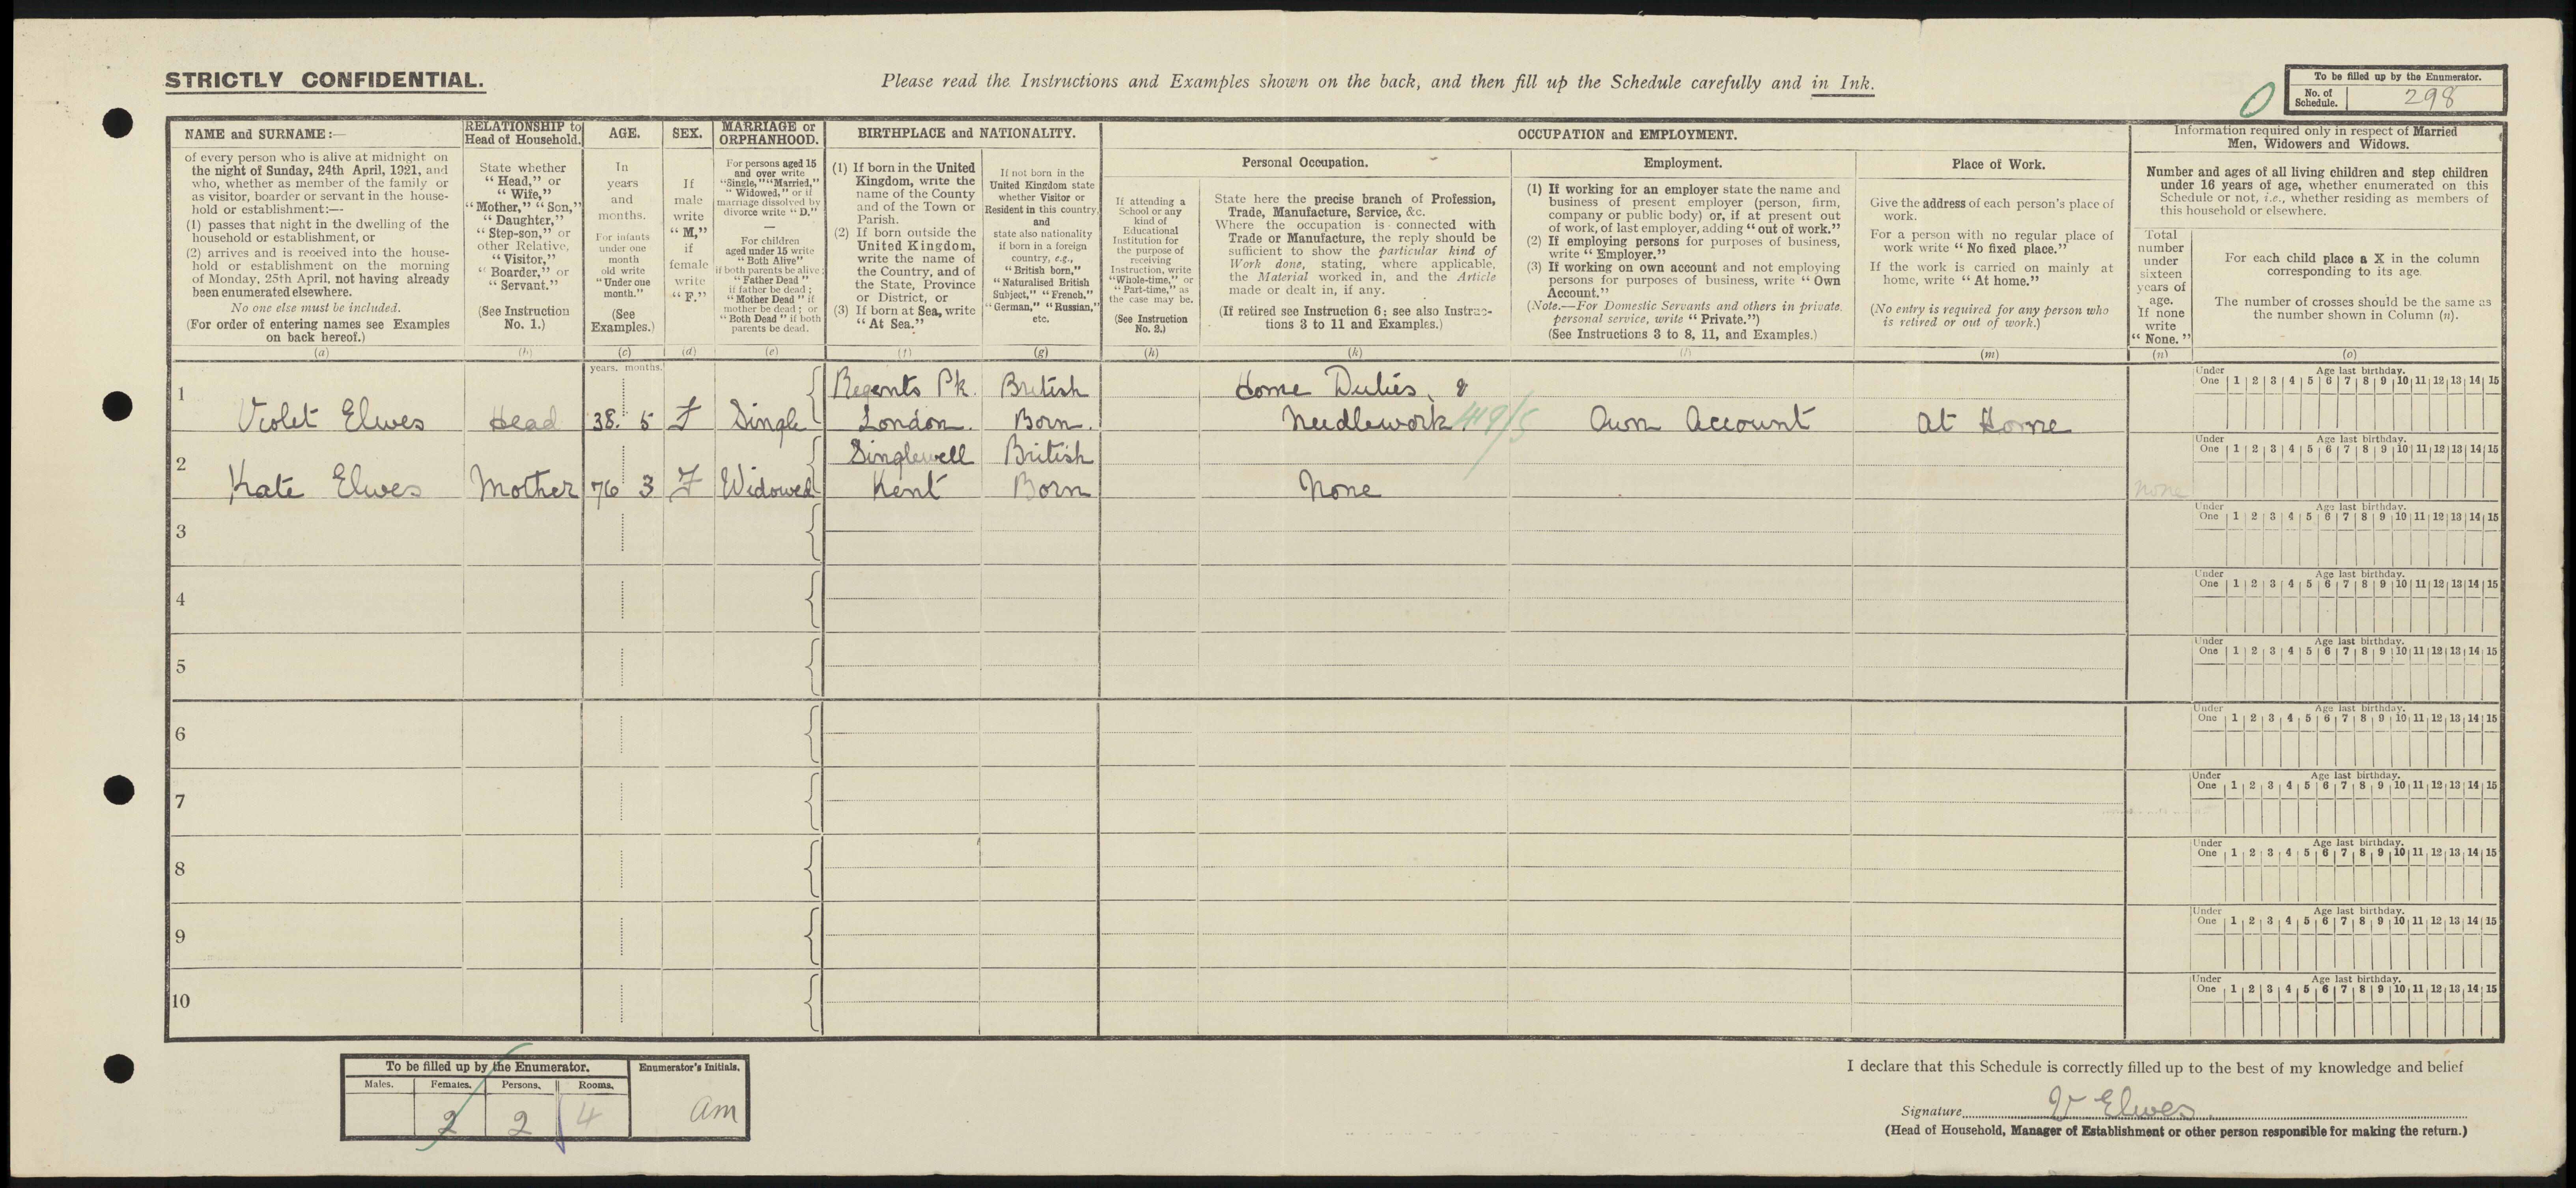 STRICTLY CONFIDENTIAL.
Please read the Instructions and Examples shown on the back, and then fill up the Schedule carefully and in Ink.
To be filled up by the Enumerator.
No. of Schedule. 298
0
NAME and SURNAME:—
of every person who is alive at midnight on
the night of Sunday, 24th April, 1921, and
who, whether as member of the family or
as visitor, boarder or servant in the house-
hold or establishment:—
(1) passes that night in the dwelling of the
household or establishment, or
(2) arrives and is received into the house-
hold or establishment on the morning
of Monday, 25th April, not having already
been enumerated elsewhere.
No one else must be included.
(For order of entering names see Examples
on back hereof.)
(a)
RELATIONSHIP to
Head of Household.
State whether
"Head," or
"Wife,"
"Mother," "Son,"
"Daughter,"
"Step-son," or
other Relative,
"Visitor,"
"Boarder," or
"Servant."
(See Instruction
No. 1.)
(b)
AGE.
In
years
and
months.
For infants
under one
month
old write
"Under one
month."
(See
Examples.)
(c)
SEX.
If
male
write
"M,"
if
female
write
"F."
(d)
MARRIAGE or
ORPHANHOOD.
For persons aged 15
and over write
"Single," "Married,"
"Widowed," or if
marriage dissolved by
divorce write "D."
—
For children
aged under 15 write
"Both Alive"
if both parents be alive;
"Father Dead"
if father be dead;
"Mother Dead" if
mother be dead; or
"Both Dead" if both
parents be dead.
(e)
BIRTHPLACE and NATIONALITY.
(1) If born in the United
Kingdom, write the
name of the County
and of the Town or
Parish.
(2) If born outside the
United Kingdom,
write the name of
the Country, and of
the State, Province
or District, or
(3) If born at Sea, write
"At Sea."
(f)
If not born in the
United Kingdom state
whether Visitor or
Resident in this country,
and
state also nationality
if born in a foreign
country, e.g.,
"British born,"
"Naturalised British
Subject," "French,"
"German," "Russian,"
etc.
(g)
OCCUPATION and EMPLOYMENT.
If attending a
School or any
kind of
Educational
Institution for
the purpose of
receiving
Instruction, write
"Whole-time," or
"Part-time," as
the case may be.
(See Instruction
No. 2.)
(h)
Personal Occupation.
State here the precise branch of Profession,
Trade, Manufacture, Service, &c.
Where the occupation is connected with
Trade or Manufacture, the reply should be
sufficient to show the particular kind of
Work done, stating, where applicable,
the Material worked in, and the Article
made or dealt in, if any.
(If retired see Instruction 6; see also Instruc-
tions 3 to 11 and Examples.)
(k)
Employment.
(1) If working for an employer state the name and
business of present employer (person, firm,
company or public body) or, if at present out
of work, of last employer, adding "out of work."
(2) If employing persons for purposes of business,
write "Employer."
(3) If working on own account and not employing
persons for purposes of business, write "Own
Account."
(Note.—For Domestic Servants and others in private
personal service, write "Private.")
(See Instructions 3 to 8, 11, and Examples.)
(l)
Place of Work.
Give the address of each person's place of
work.
For a person with no regular place of
work write "No fixed place."
If the work is carried on mainly at
home, write "At home."
(No entry is required for any person who
is retired or out of work.)
(m)
Information required only in respect of Married
Men, Widowers and Widows.
Number and ages of all living children and step children
under 16 years of age, whether enumerated on this
Schedule or not, i.e., whether residing as members of
this household or elsewhere.
Total
number
under
sixteen
years of
age.
If none
write
"None."
(n)
For each child place a X in the column
corresponding to its age.
The number of crosses should be the same as
the number shown in Column (n).
(o)
years. months.
Under One Age last birthday. 1 2 3 4 5 6 7 8 9 10 11 12 13 14 15
1 Regents Pk. British Home Duties, &
Violet Elwes Head 38. 5 F Single London. Born. Needlework 419/5 Own Account At Home
Under One Age last birthday. 1 2 3 4 5 6 7 8 9 10 11 12 13 14 15
2 Singlewell British
Kate Elwes Mother 76 3 F Widowed Kent Born None None
Under One Age last birthday. 1 2 3 4 5 6 7 8 9 10 11 12 13 14 15
3
Under One Age last birthday. 1 2 3 4 5 6 7 8 9 10 11 12 13 14 15
4
Under One Age last birthday. 1 2 3 4 5 6 7 8 9 10 11 12 13 14 15
5
Under One Age last birthday. 1 2 3 4 5 6 7 8 9 10 11 12 13 14 15
6
Under One Age last birthday. 1 2 3 4 5 6 7 8 9 10 11 12 13 14 15
7
Under One Age last birthday. 1 2 3 4 5 6 7 8 9 10 11 12 13 14 15
8
Under One Age last birthday. 1 2 3 4 5 6 7 8 9 10 11 12 13 14 15
9
Under One Age last birthday. 1 2 3 4 5 6 7 8 9 10 11 12 13 14 15
10
To be filled up by the Enumerator.
Males. Females. Persons. Rooms.
2 2 4
Enumerator's Initials.
am
I declare that this Schedule is correctly filled up to the best of my knowledge and belief
Signature V Elwes.
(Head of Household, Manager of Establishment or other person responsible for making the return.)